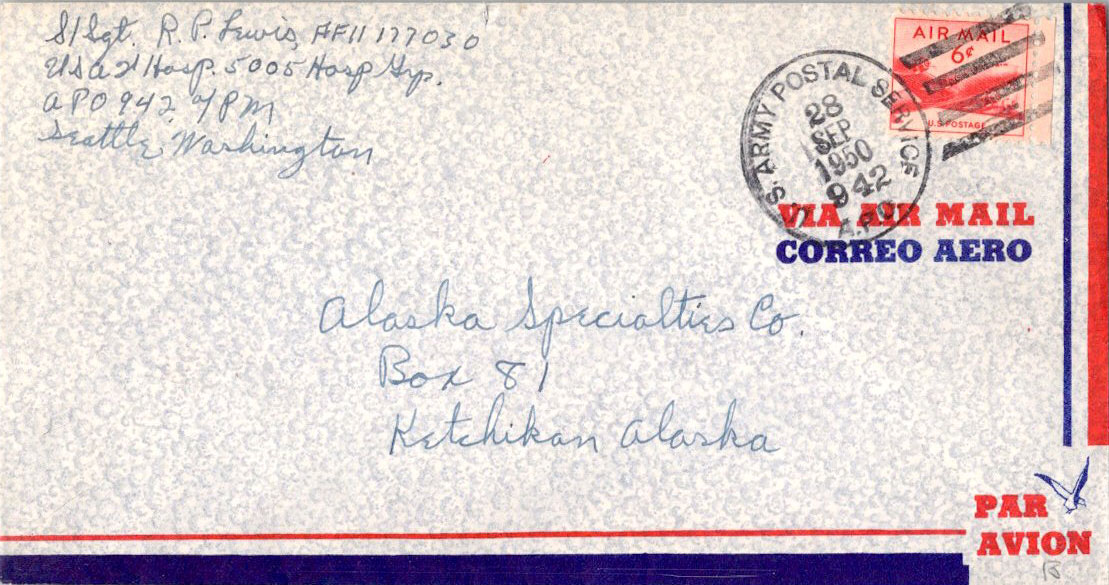 S/Sgt. R. P. Lewis, AF11177030
USAF Hosp. 5005 Hosp Grp.
APO 942, c/o PM
Seattle, Washington
AIR MAIL
6¢
U.S. POSTAGE
U.S. ARMY POSTAL SERVICE
28
SEP
1950
942
A.P.O.
VIA AIR MAIL
CORREO AERO
Alaska Specialties Co.
Box 81
Ketchikan Alaska
PAR
AVION